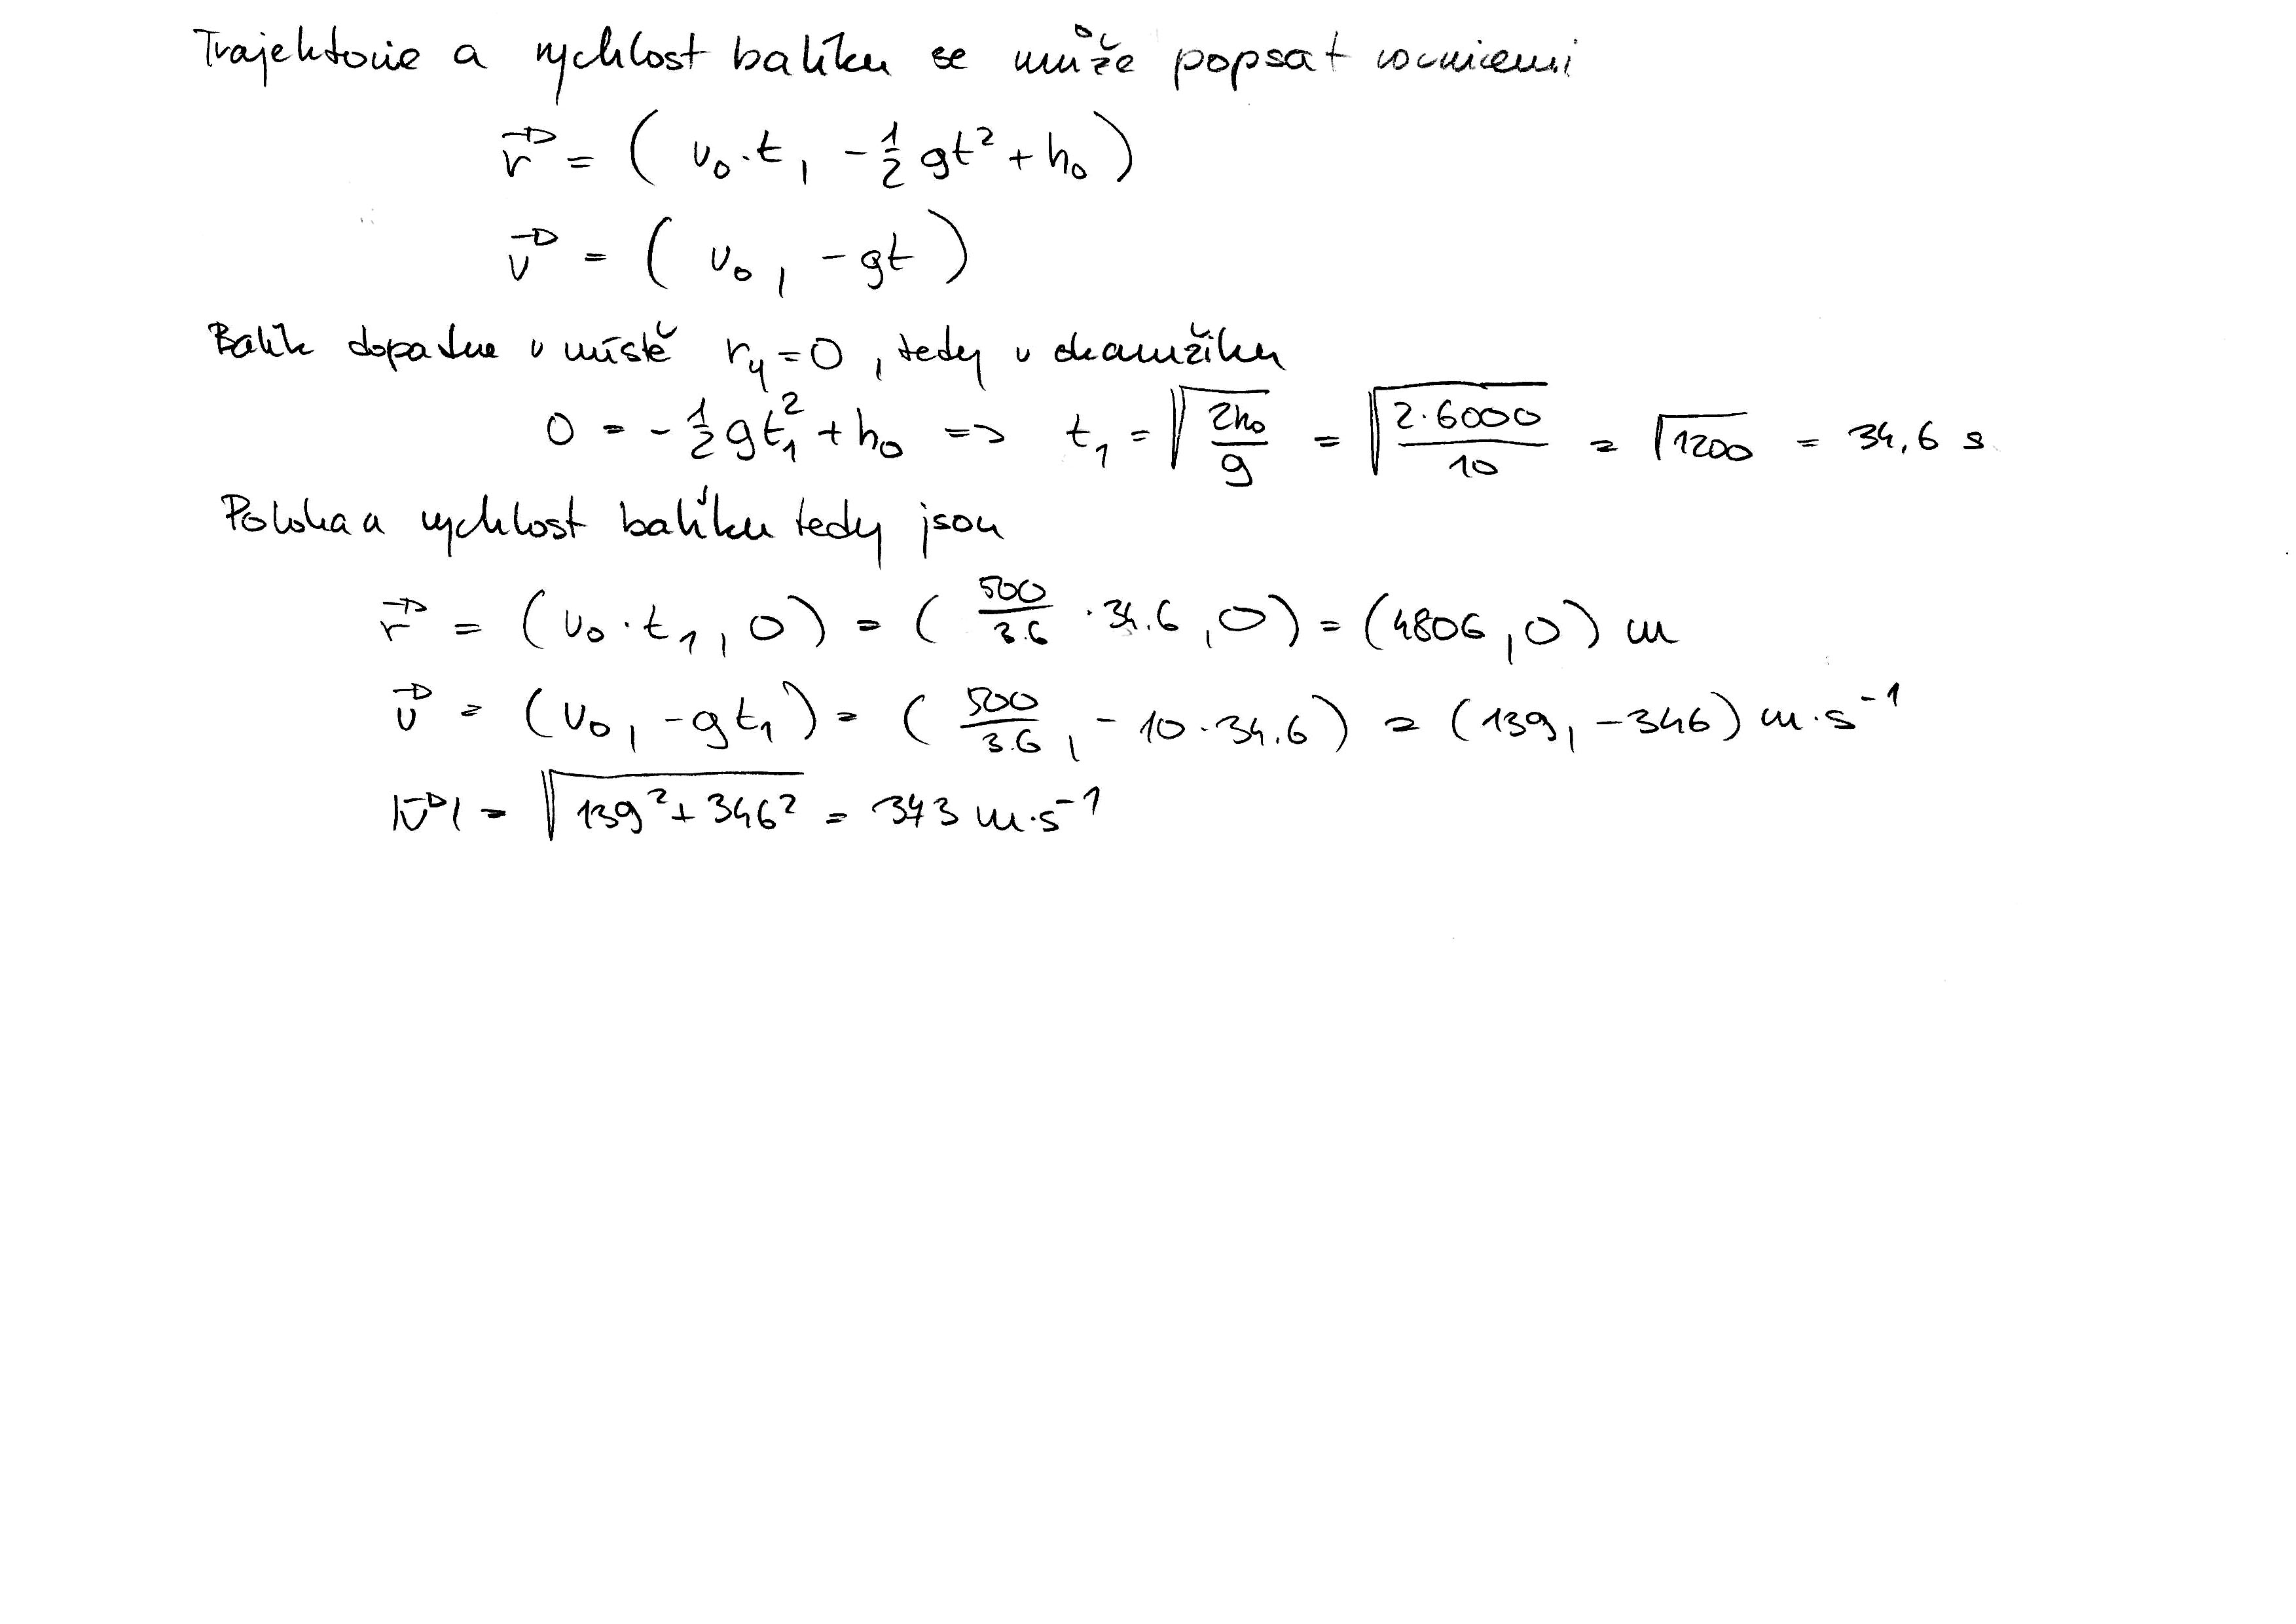 Trajektorie a rychlost balíku se může popsat rovnicemi
r⃗ = ( v₀·t, -½ gt² + h₀ )
v⃗ = ( v₀, -gt )
Balík dopadne v místě r_y = 0, tedy v okamžiku
0 = -½ gt₁² + h₀ => t₁ = √(2h₀/g) = √(2·6000/10) = √1200 = 34,6 s
Poloha a rychlost balíku tedy jsou
r⃗ = (v₀·t₁, 0) = ( 500/3.6 · 34.6, 0) = (4806, 0) m
v⃗ = (v₀, -gt₁) = ( 500/3.6, -10·34.6) = (139, -346) m·s⁻¹
|v⃗| = √(139² + 346²) = 373 m·s⁻¹